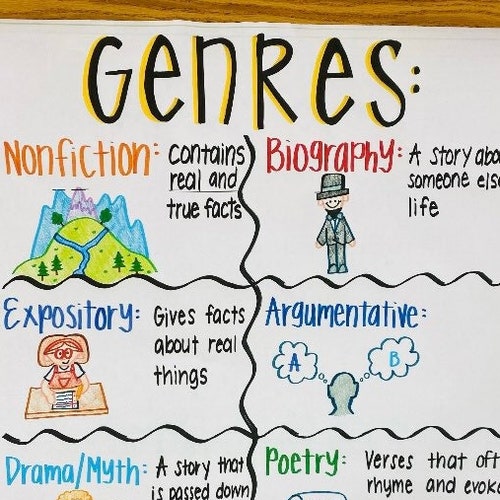 Genres:
Nonfiction:
Contains
real and
true facts
Biography:
A story abo
someone else
life
Expository:
Gives facts
about real
things
Argumentative:
A
B
Drama/Myth:
A story that
is passed down
Poetry:
Verses that oft
rhyme and evok